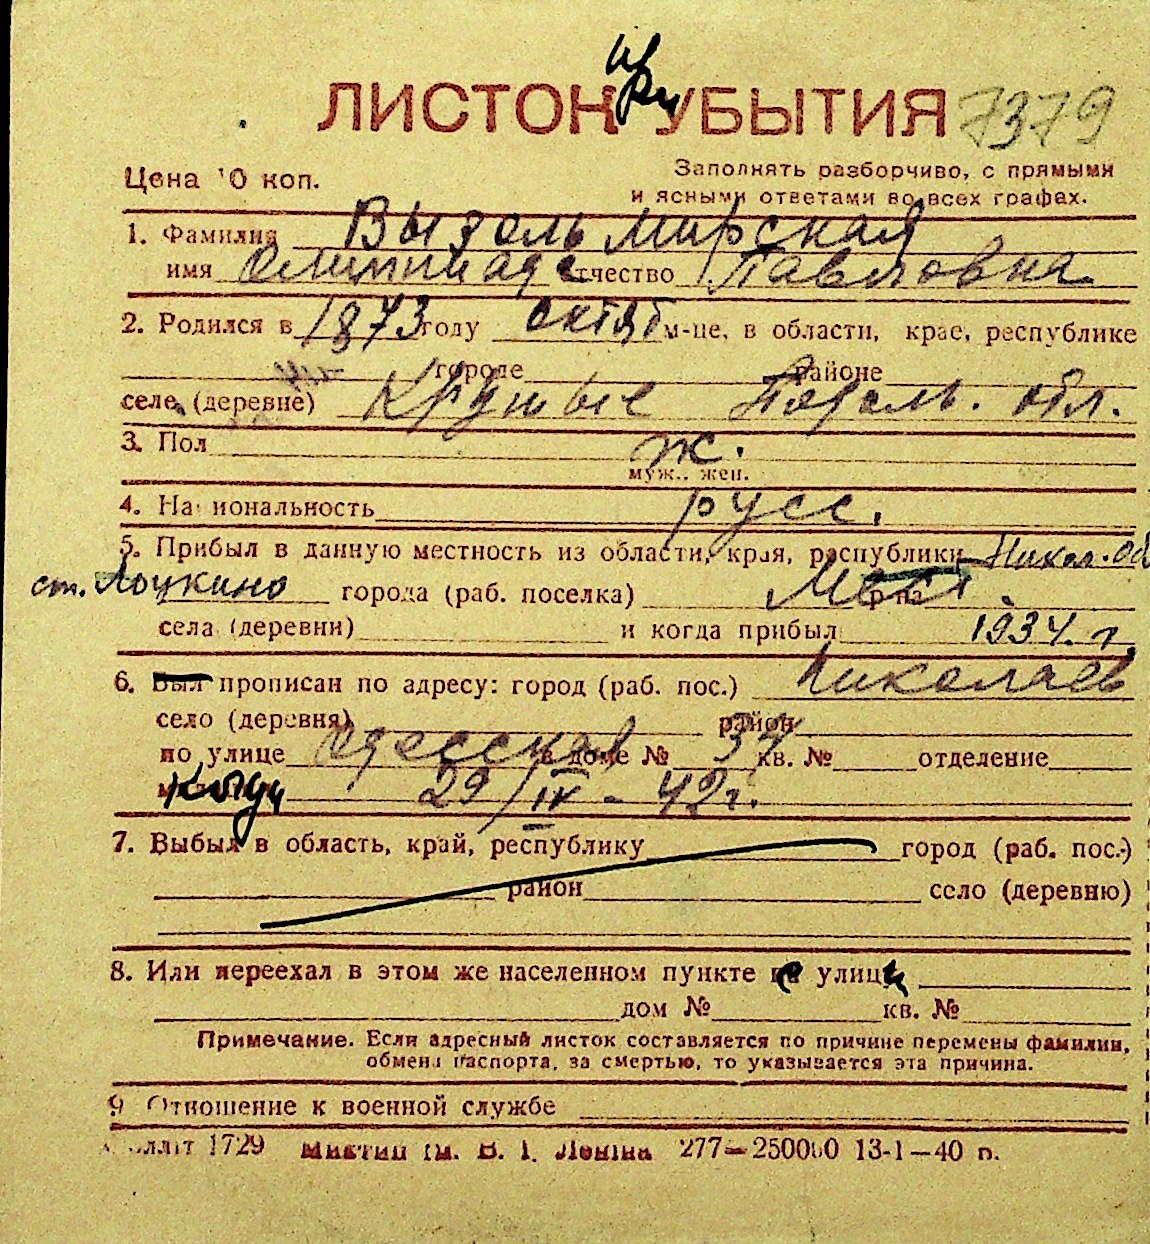 ЛИСТОК при УБЫТИЯ 7379
Цена 10 коп.
Заполнять разборчиво, с прямыми
и ясными ответами во всех графах.
1. Фамилия Вызоль Мирская
имя Олимпиада отчество Павловна
2. Родился в 1873 году октяб м-це, в области, крае, республике
городе районе
селе, (деревне) Крутые Подоль. обл.
3. Пол ж.
муж., жен.
4. Национальность русс.
5. Прибыл в данную местность из области, края, республики Никол. об
ст. Лоцкино города (раб. поселка)
села (деревни) и когда прибыл 1934. г.
6. Был прописан по адресу: город (раб. пос.) Николаев
село (деревня) район
по улице Одесская в доме № 37 кв. № отделение
29/IV - 42 г.
7. Выбыл в область, край, республику город (раб. пос.)
район село (деревню)
8. Или переехал в этом же населенном пункте с улицы
дом № кв. №
Примечание. Если адресный листок составляется по причине перемены фамилии,
обмена паспорта, за смертью, то указывается эта причина.
9 Отношение к военной службе
1729 ім. В. І. Леніна 277—250000 13-1—40 р.